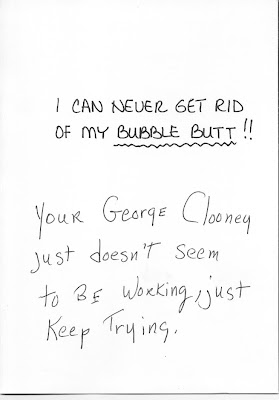 I CAN NEVER GET RID
OF MY BUBBLE BUTT!!
Your George Clooney
just doesn't seem
to BE Working, just
Keep Trying.